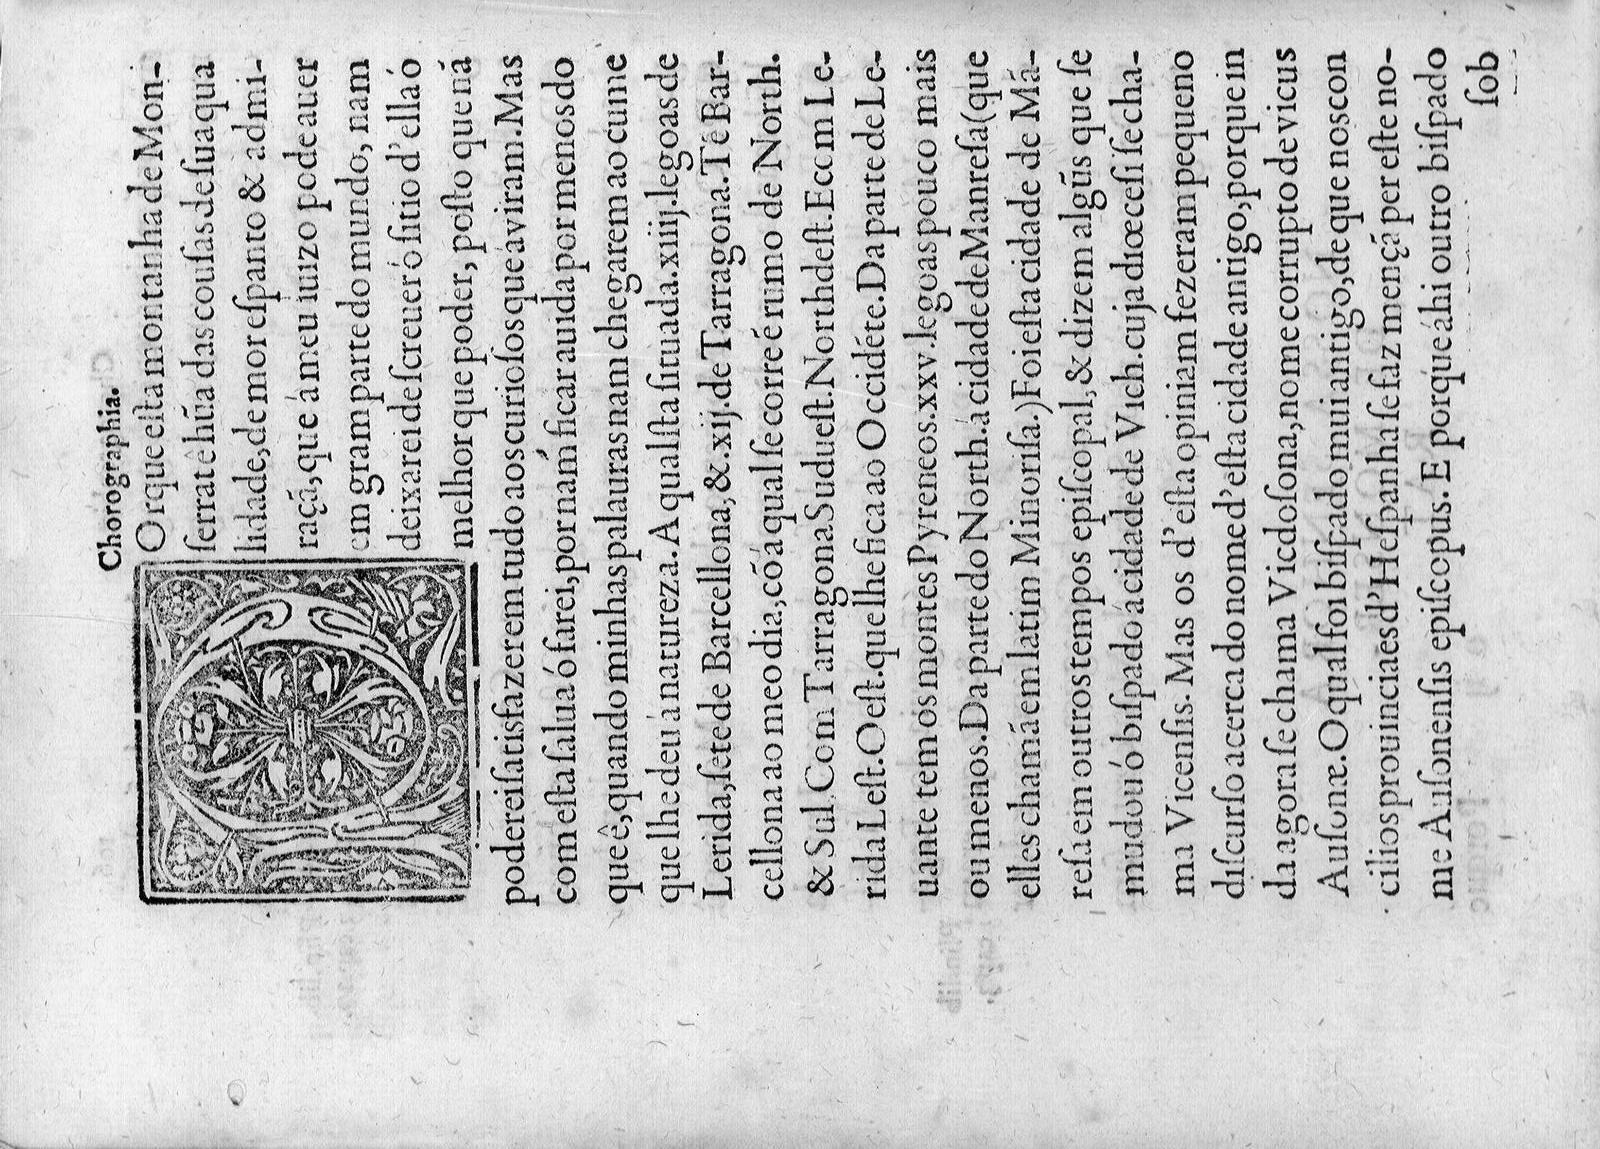 Chorographia.
POrque esta montanha de Mon-
ſerrat ê hũa das couſas de ſua qua
lidade, de mor eſpanto & admi-
raçã, que á meu iuizo pode auer
em gram parte do mundo, nam
deixarei deſcreuer ó ſitio d'ella ó
melhor que poder, poſto que nã
podérei ſatisfazer em tudo aos curioſos que á viram. Mas
com eſta ſalua ó farei, por nam ficar auida por menos do
que ê, quando minhas palauras nam chegarem ao cume
que lhe deu á natureza. A qual ſta ſituada .xiiij. legoas de
Lerida, ſete de Barcellona, &. xij. de Tarragona. Tẽ Bar-
cellona ao meo dia, cõ á qual ſe corre é rumo de North.
& Sul. Com Tarragona Suduest. Northdeſt. E com Le-
rida Leſt. Oeſt. que lhe fica ao Occidẽte. Da parte de Le-
uante tem os montes Pyreneos. xxv. legoas pouco mais
ou menos. Da parte do North. á cidade de Manreſa (que
elles chamã em latim Minoriſa.) Foi eſta cidade de Mã-
reſa em outros tempos epiſcopal, & dizem algũs que ſe
mudou ó biſpado á cidade de Vich. cuja diœceſi ſe cha-
ma Vicenſis. Mas os d'eſta opiniam fezeram pequeno
diſcurſo acerca do nome d'eſta cidade antigo, porque in
da agora ſe chama Vicdoſona, nome corrupto de vicus
Auſonæ. O qual foi biſpado mui antigo, de que nos con
cilios prouinciaes d'Heſpanha ſe faz mençã per eſte no-
me Auſonenſis epiſcopus. E porque áhi outro biſpado
ſob